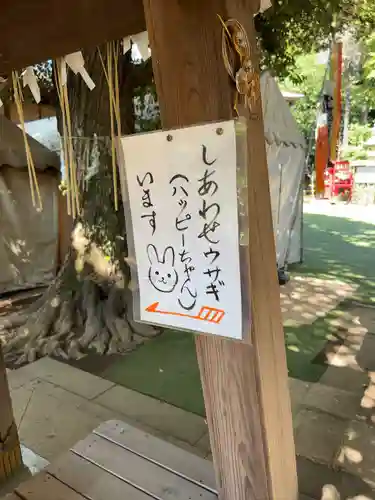 しあわせウサギ
(ハッピーちゃん)
います